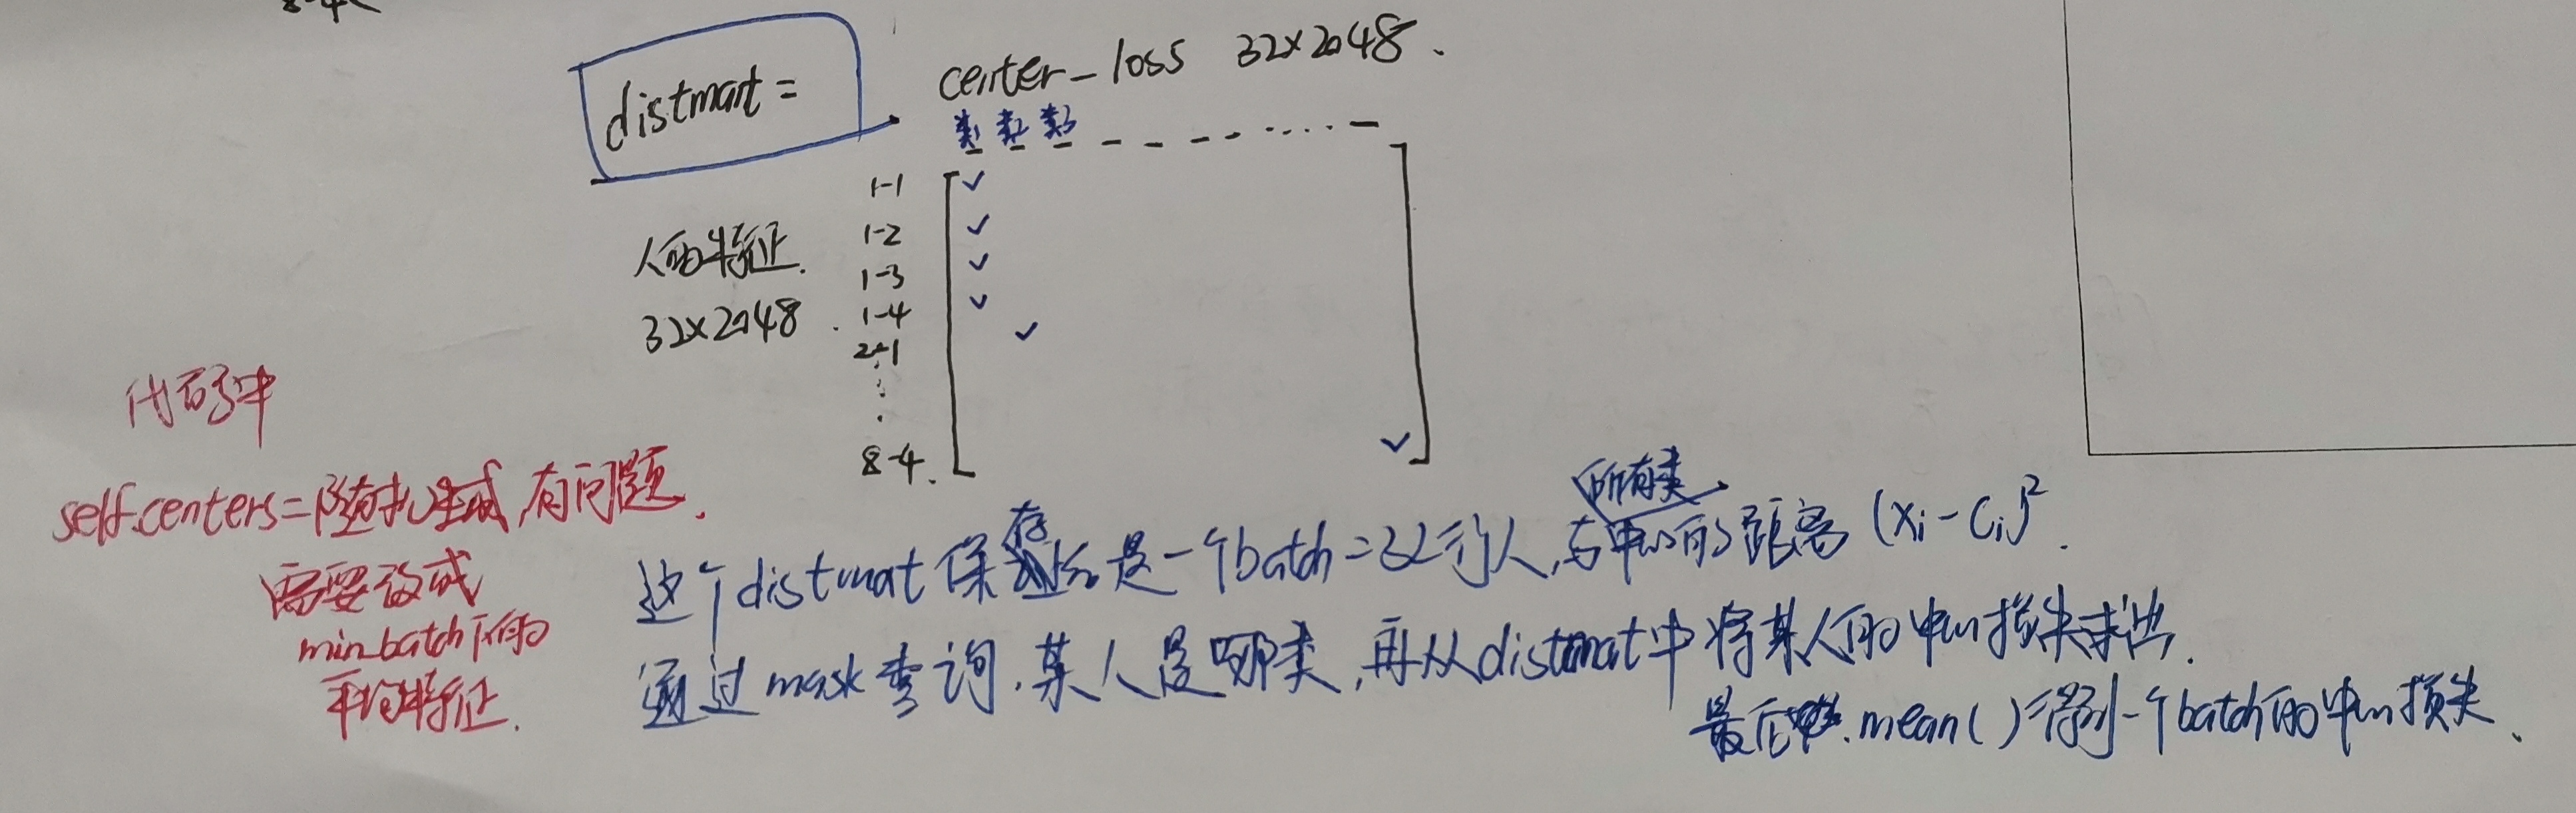 8-4
distmat =
center-loss 32×2048.
类1 类2 类3
1-1
1-2
1-3
1-4
2-1
8-4.
人的特征.
32×2048.
代码中
self.centers=随机生成,有问题.
需要改成
min_batch下的
平均特征.
所有类
这个distmat保存的是一个batch=32行人,与中心的距离(xi-Ci)².
通过mask查询,某人是哪类,再从distmat中将某人的中心损失求出.
最后.mean()得到一个batch的中心损失.